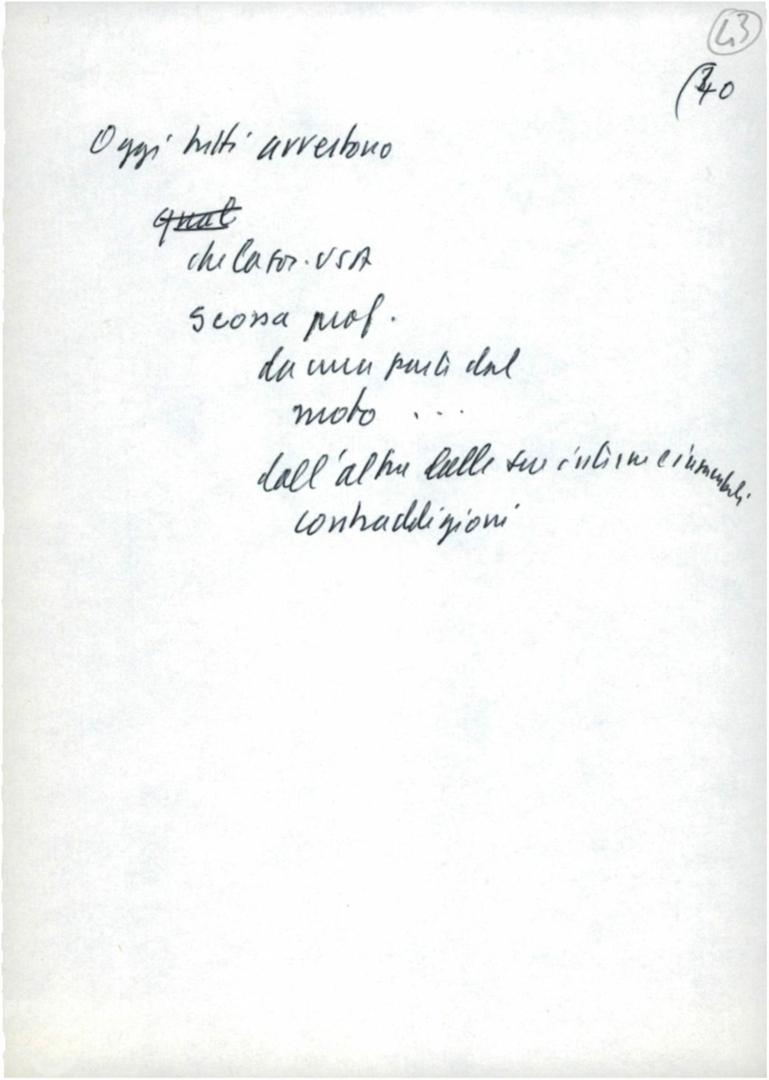 43
(40
Oggi tutti avvertono
qual
che la soc. USA
scossa prof.
da una parte dal
moto ...
dall'altra dalle sue intime e insanabili
contraddizioni